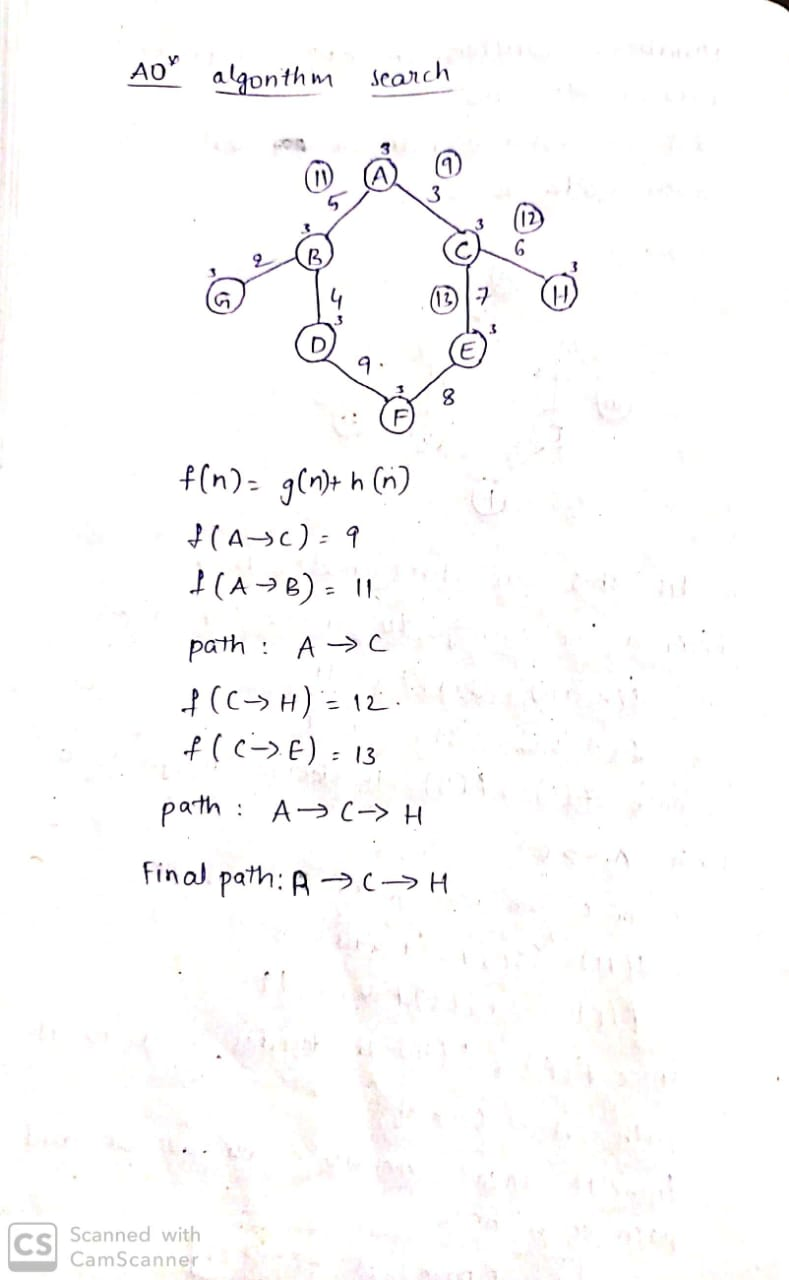 AO* algorithm search
3
11 A 9
5 3
3 3 12
2 B C 6
3 3
G 4 13 7 H
3 3
D E
9.
3 8
F
f(n) = g(n) + h(n)
f(A→C) = 9
f(A→B) = 11.
path : A → C
f(C→H) = 12.
f(C→E) = 13
path : A → C → H
Final path: A → C → H
CS Scanned with
CamScanner